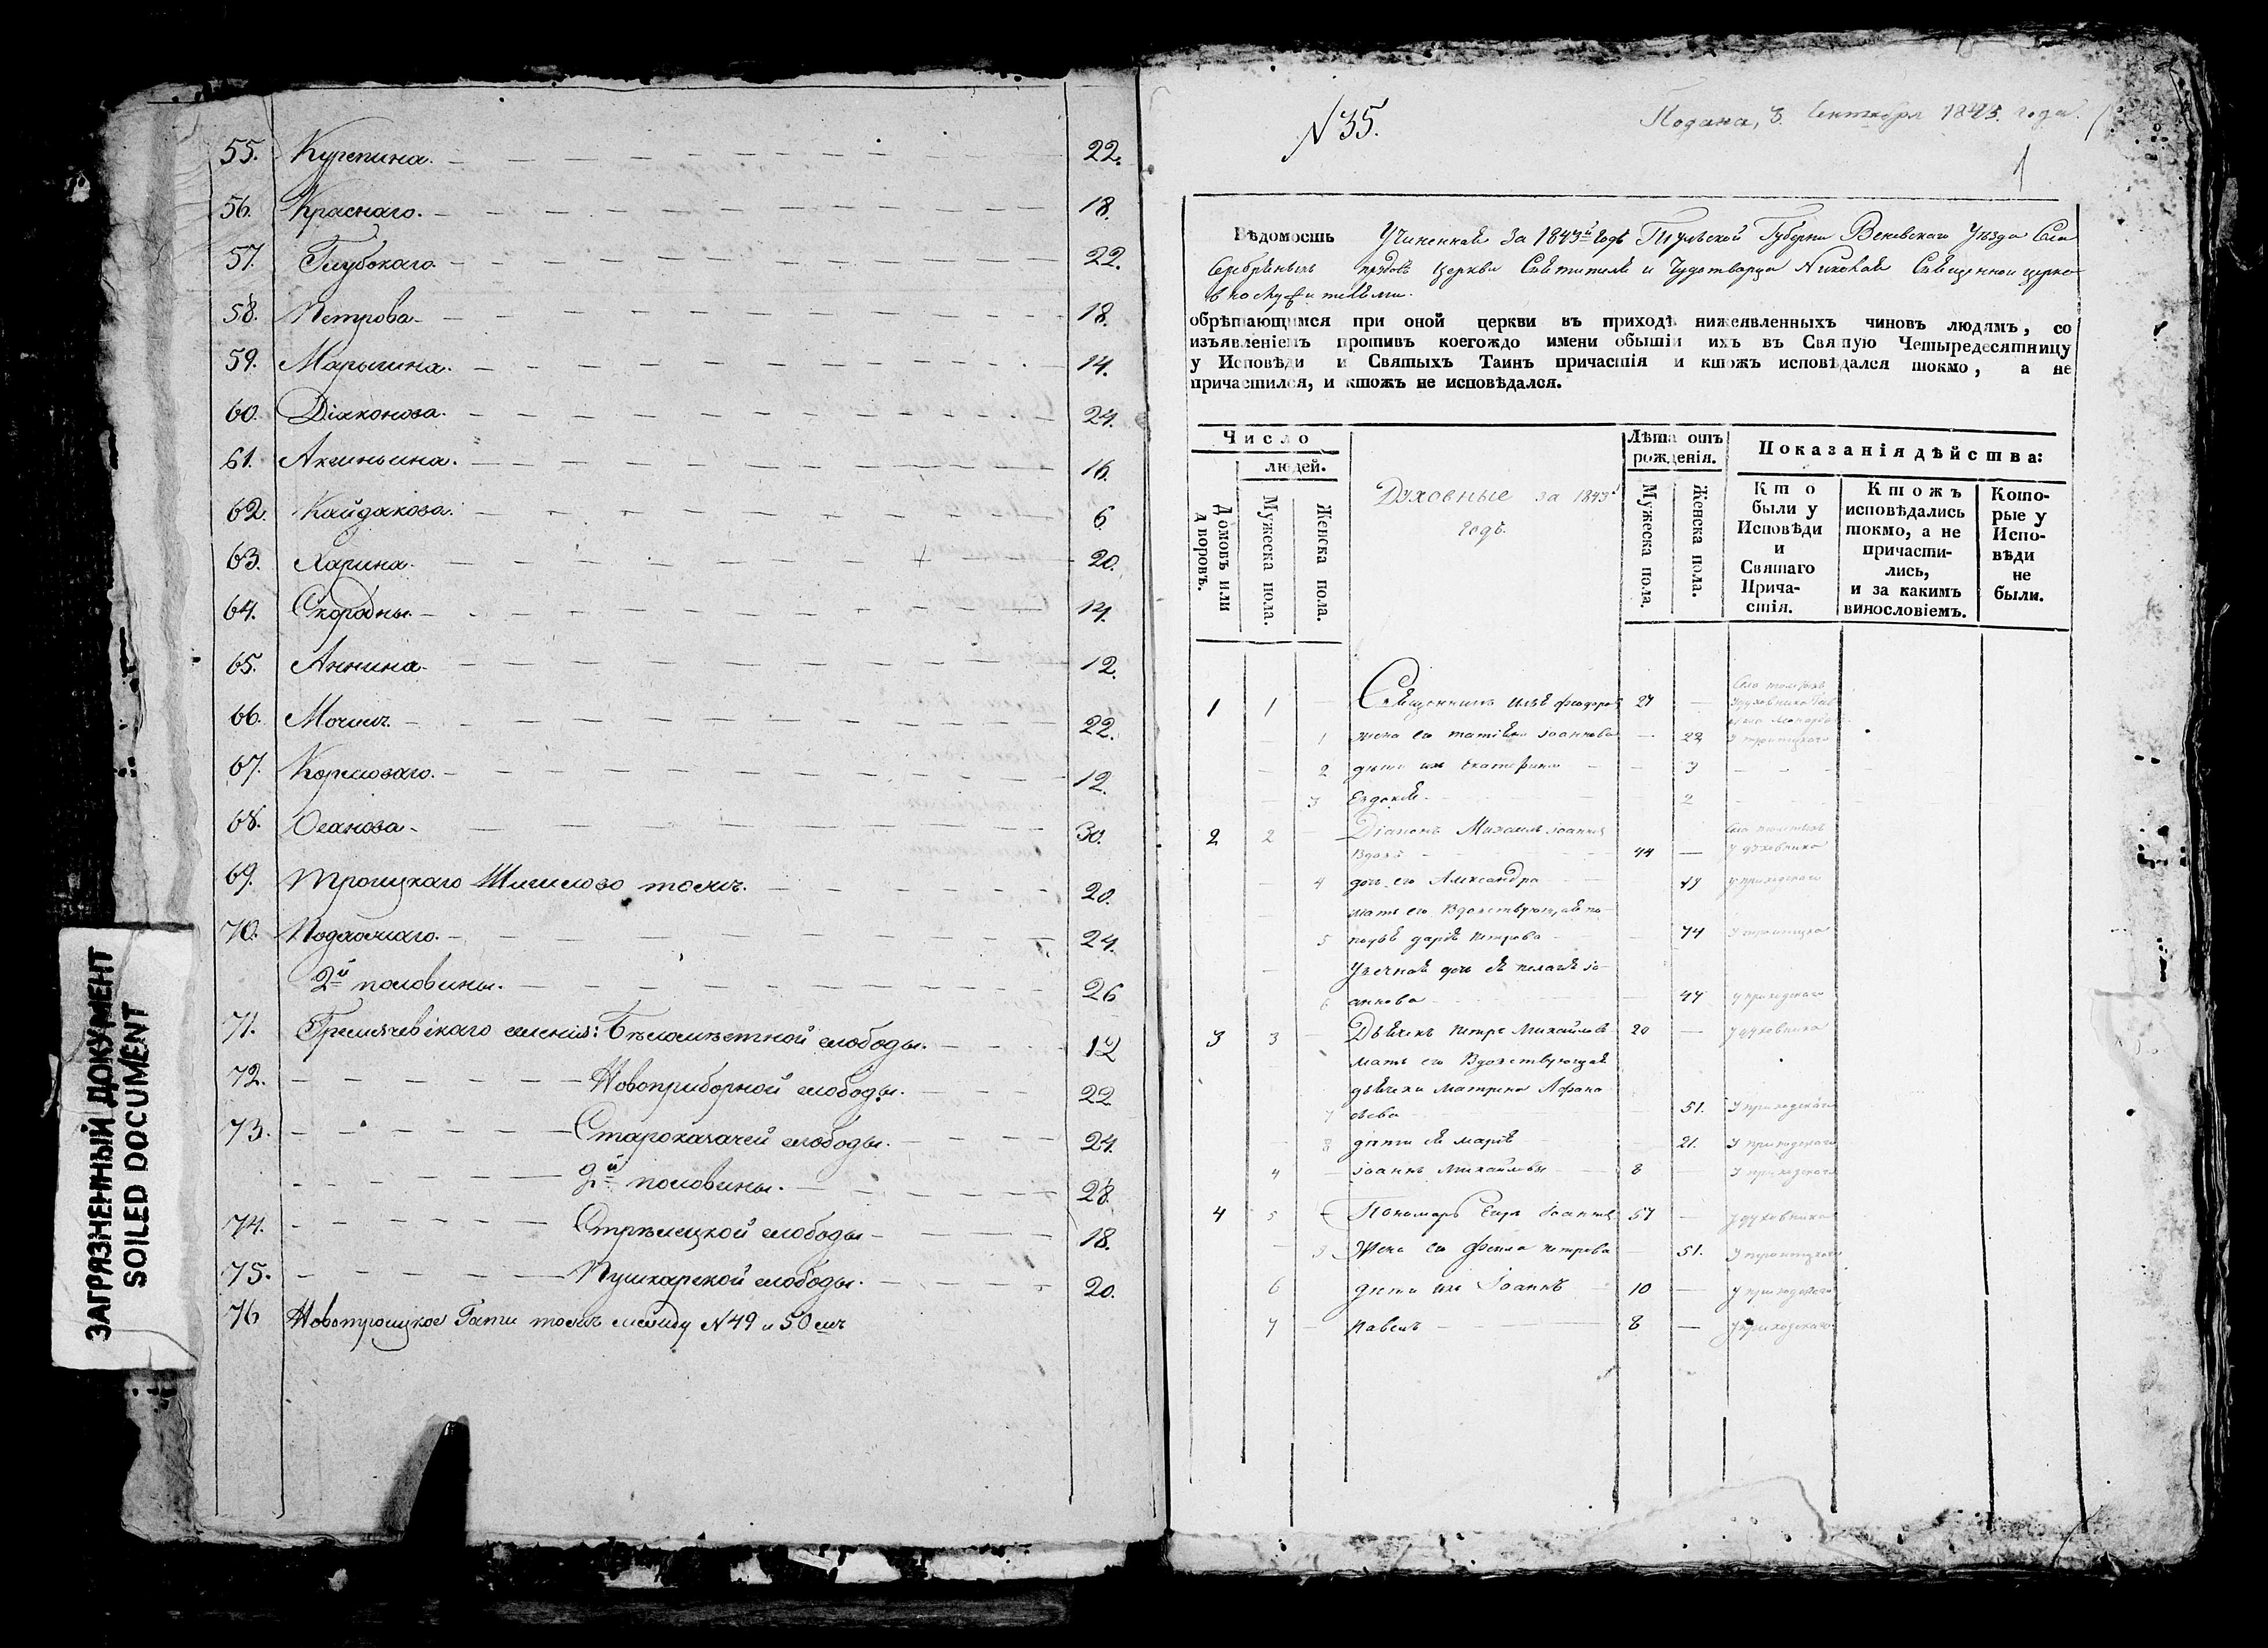 55. Курепина. 22.
56. Краснаго. 18.
57. Глубокаго. 22.
58. Петрова 18.
59. Марыгина. 14.
60. Дiаконова. 24.
61. Аксиньина. 16.
62. Кайдакова. 6.
63. Харина. 20.
64. Скородны. 14.
65. Аннина 12.
66. 22.
67. 12.
68. Оганова 30.
69. Троицкаго тожъ. 20.
70. 24.
2й половины. 26
71. Гремячевскаго селенiя: Бѣломѣстной слободы. 12
72. Новоприборной слободы. 22
73. Староказачей слободы. 24.
2й половины. 28.
74. Стрѣлецкой слободы 18.
75. Пушкарской слободы. 20.
76 Новотроицкое Гати тожъ между N 49 и 50 мъ
ЗАГРЯЗНЕННЫЙ ДОКУМЕНТ
SOILED DOCUMENT
N 35.
Подана, 3. Сентября 1843. года.
1
Вѣдомость Учиненная За 1843й Годъ Тульской Губернiи Веневскаго Уѣзда Села
церкви Святителя и Чудотворца Николая Священно церко
в но служителями.
обрѣтающимся при оной церкви въ приходѣ нижеявленныхъ чиновъ людямъ, со
изъявленiемъ противъ коегождо имени бытiи ихъ въ Святую Четыредесятницу
у Исповѣди и Святыхъ Таинъ причастiя и ктожъ исповѣдался токмо, а не
причастился, и ктожъ не исповѣдался.
Число
людей.
Домовъ или дворовъ.
Мужеска пола.
Женска пола.
Духовные за 1843й
годъ.
Лѣта отъ
рожденiя.
Мужеска пола.
Женска пола.
Показанiя дѣйства:
Кто
были у
Исповѣди
и
Святаго
Прича-
стiя.
Ктожъ
исповѣдались
токмо, а не
причасти-
лись,
и за какимъ
винословiемъ.
Кото-
рые у
Испо-
вѣди
не
были.
1 1 Священникъ Илья Феодоровъ 27
1 жена его Iоаннова 22
2 дѣти ихъ Екатерина 3
3 Евдокiя 2
2 2 Дiаконъ Михаилъ Iоанновъ
Вдовъ 44 У духовника
4 дочь его Александра У приходскаго
мать его Вдовствующая по-
5 падья Дарья Петрова 74
дочь ея Пелагея Iо-
6 аннова 44 У приходскаго
3 3 Дьячекъ Петръ Михайловъ 20 У духовника
мать его Вдовствующая
дьячиха Матрена Афана
7 сьева 51. У приходскаго
8 дѣти ея Марья 21. У приходскаго
4 Iоаннъ Михайловъ 8 У приходскаго
4 5 Пономарь Егоръ Iоанновъ 57 У духовника
9 Жена его Фекла Петрова 51.
6 дѣти ихъ Iоаннъ 10 У приходскаго
7 Павелъ 8 У приходскаго